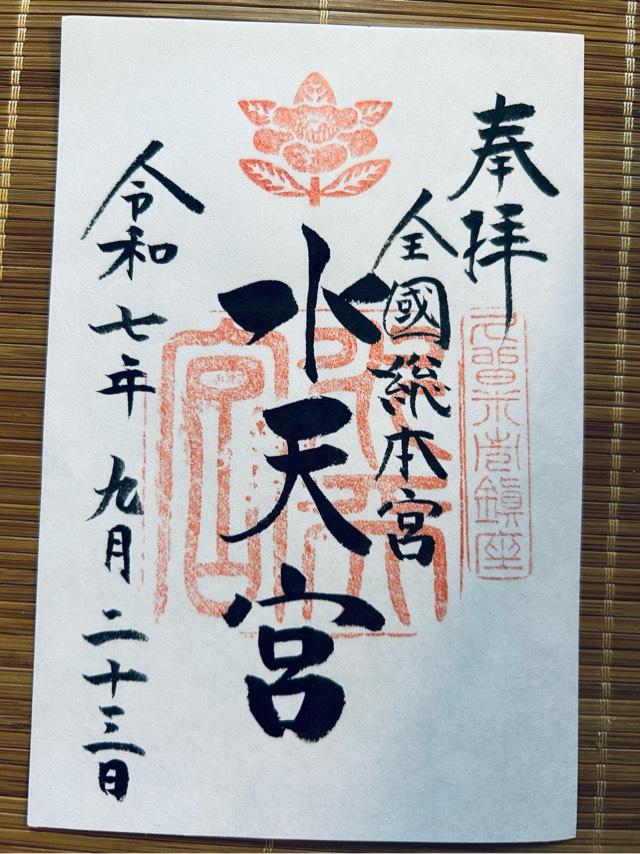 奉拝
久留米市鎮座
全國総本宮
水天宮
水天宮
令和七年九月二十三日